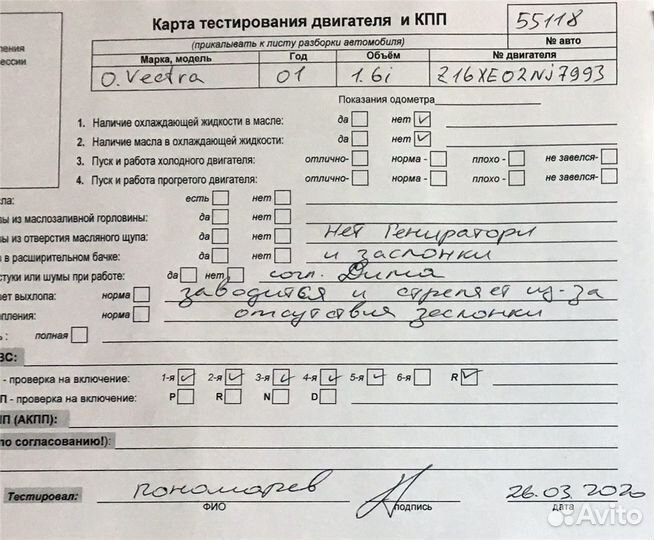 Карта тестирования двигателя и КПП
55118
(прикалывать к листу разборки автомобиля)
№ авто
Марка, модель Год Объём № двигателя
O. Vectra 01 1.6i Z16XE02NJ7993
Показания одометра
1. Наличие охлаждающей жидкости в масле: да нет
2. Наличие масла в охлаждающей жидкости: да нет
3. Пуск и работа холодного двигателя: отлично- норма - плохо - не завелся-
4. Пуск и работа прогретого двигателя: отлично- норма - плохо - не завелся-
есть нет
из маслозаливной горловины: да нет
из отверстия масляного щупа: да нет Нет Гениратори
в расширительном бачке: да нет и заслонки
стуки или шумы при работе: да нет согл. Дима
выхлопа: норма заводится и стреляет из-за
норма отсутствия зеслонки
полная
- проверка на включение: 1-я 2-я 3-я 4-я 5-я 6-я R
- проверка на включение: P R N D
(АКПП):
по согласованию!):
Тестировал: Пономарев 26.03.2020
ФИО подпись дата
Avito